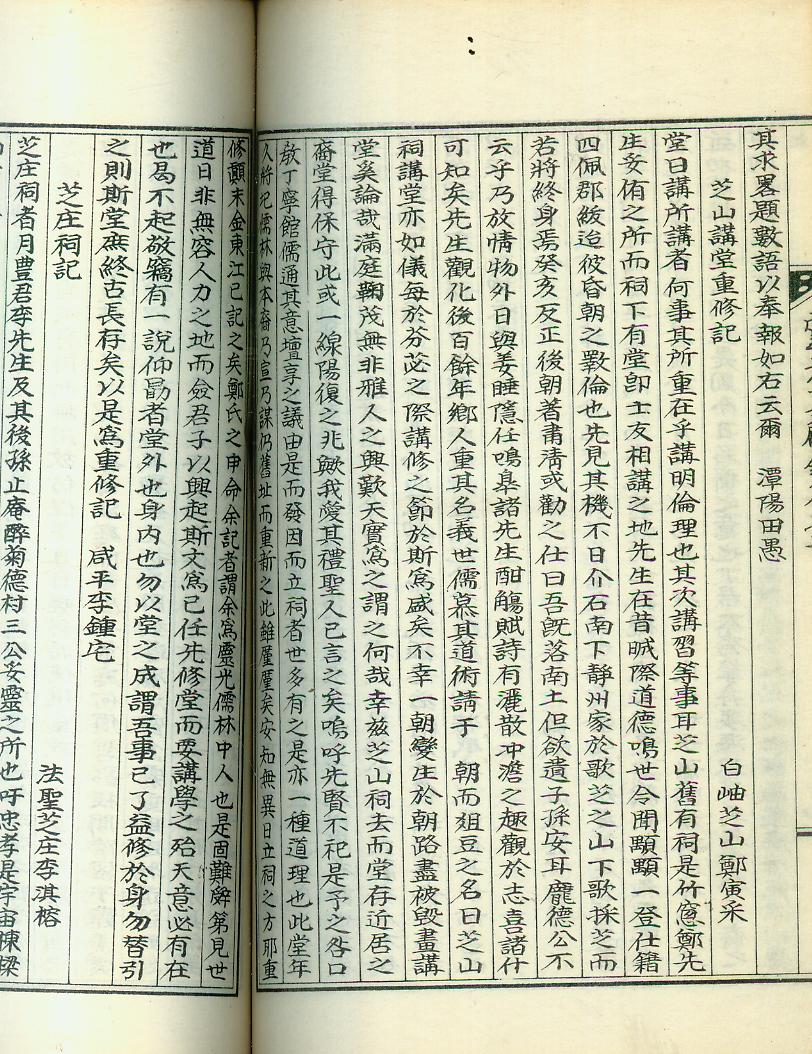 其求畧題數語以奉報如右云爾 潭陽田愚
芝山講堂重修記 白岫芝山鄭寅采
堂日講所講者何事其所重在乎講明倫理也其次講習等事耳芝山舊有祠是竹窓鄭先
生妥侑之所而祠下有堂卽士友相講之地先生在昔晠際道德鳴世令聞顒顒一登仕籍
四佩郡綬迨彼昏朝之斁倫也先見其機不日介石南下靜州家於歌芝之山下歌採芝而
若將終身焉癸亥反正後朝著肅淸或勸之仕曰吾旣落南土但欲遺子孫安耳龐德公不
云乎乃放情物外日與姜睡隱任鳴臯諸先生酣觴賦詩有灑散冲澹之趣觀於志喜諸什
可知矣先生觀化後百餘年鄕人重其名義世儒慕其道術請于 朝而俎豆之名曰芝山
祠講堂亦如儀每於芬苾之際講修之節於斯爲盛矣不幸一朝變生於朝路盡被毁畫講
堂奚論哉滿庭鞠茂無非雅人之興歎天實爲之謂之何哉幸玆芝山祠去而堂存近居之
齋堂得保守此或一線陽復之兆歟我愛其禮聖人已言之矣嗚呼先賢不祀是予之咎口
敎丁寧館儒通其意壇享之議由是而發因而立祠者世多有之是亦一種道理也此堂年
久將圮儒林與本裔乃宣乃謀仍舊址而重新之此雖厪厪矣安知無異日立祠之方那重
修顚末金東江已記之矣鄭氏之申命余記者謂余爲靈光儒林中人也是固難辭第見世
道日非無容人力之地而僉君子以興起斯文爲已任先修堂而要講學之殆天意必有在
也曷不起敬竊有一說仰勖者堂外也身內也勿以堂之成謂吾事已了益修於身勿替引
之則斯堂庶終古長存矣以是爲重修記 咸平李鍾宅
芝庄祠記 法聖芝庄李淇榕
芝庄祠者月豊君李先生及其後孫止庵醉菊德村三公妥靈之所也吁忠孝是宇宙棟樑